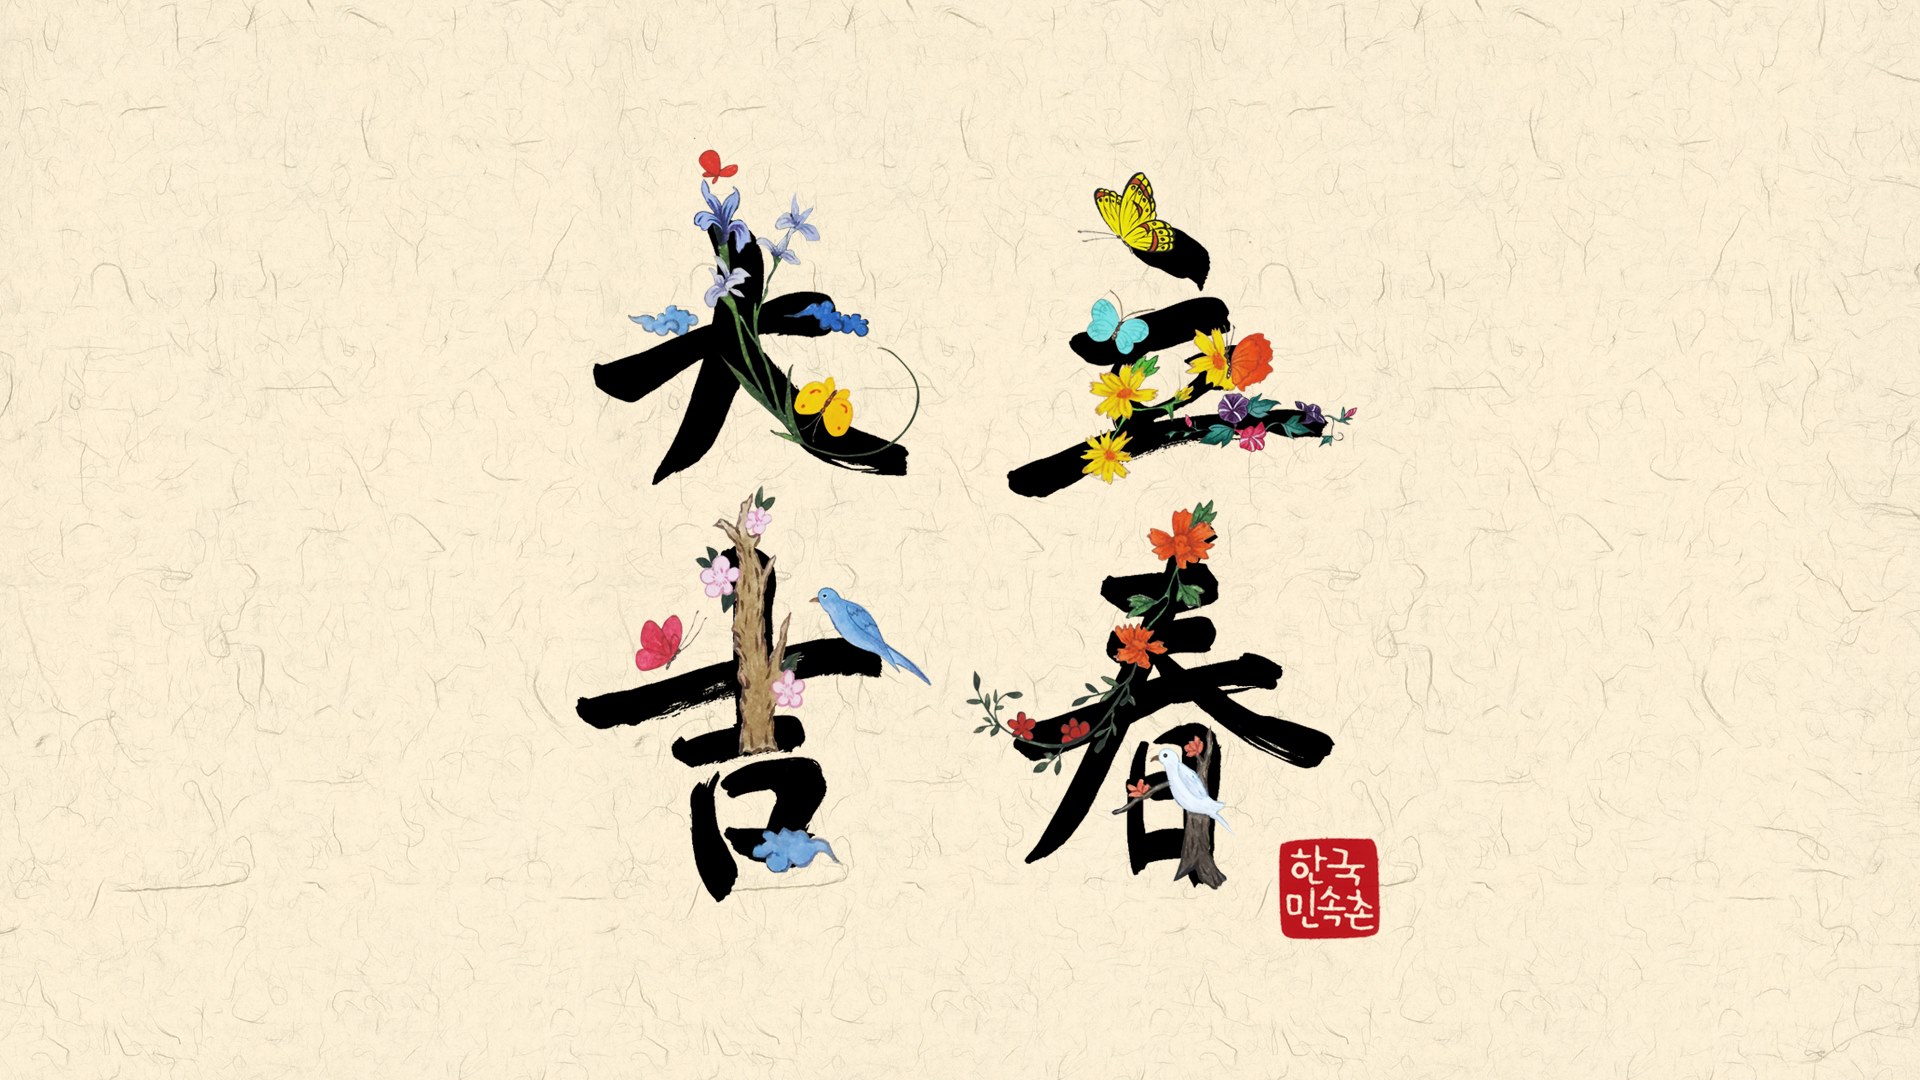 立春
大吉
한국
민속촌